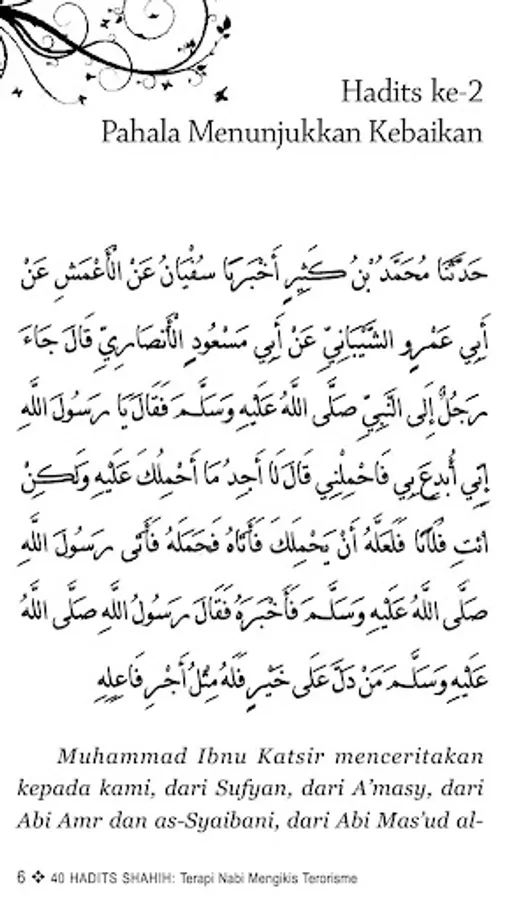 Hadits ke-2
Pahala Menunjukkan Kebaikan
حَدَّثَنَا مُحَمَّدُ بْنُ كَثِيرٍ أَخْبَرَنَا سُفْيَانُ عَنْ الْأَعْمَشِ عَنْ
أَبِي عَمْرٍو الشَّيْبَانِيِّ عَنْ أَبِي مَسْعُودٍ الْأَنْصَارِيِّ قَالَ جَاءَ
رَجُلٌ إِلَى النَّبِيِّ صَلَّى اللَّهُ عَلَيْهِ وَسَلَّمَ فَقَالَ يَا رَسُولَ اللَّهِ
إِنِّي أُبْدِعَ بِي فَاحْمِلْنِي قَالَ لَا أَجِدُ مَا أَحْمِلُكَ عَلَيْهِ وَلَكِنْ
ائْتِ فُلَانًا فَلَعَلَّهُ أَنْ يَحْمِلَكَ فَأَتَاهُ فَحَمَلَهُ فَأَتَى رَسُولَ اللَّهِ
صَلَّى اللَّهُ عَلَيْهِ وَسَلَّمَ فَأَخْبَرَهُ فَقَالَ رَسُولُ اللَّهِ صَلَّى اللَّهُ
عَلَيْهِ وَسَلَّمَ مَنْ دَلَّ عَلَى خَيْرٍ فَلَهُ مِثْلُ أَجْرِ فَاعِلِهِ
Muhammad Ibnu Katsir menceritakan
kepada kami, dari Sufyan, dari A'masy, dari
Abi Amr dan as-Syaibani, dari Abi Mas'ud al-
6 ❖ 40 HADITS SHAHIH: Terapi Nabi Mengikis Terorisme